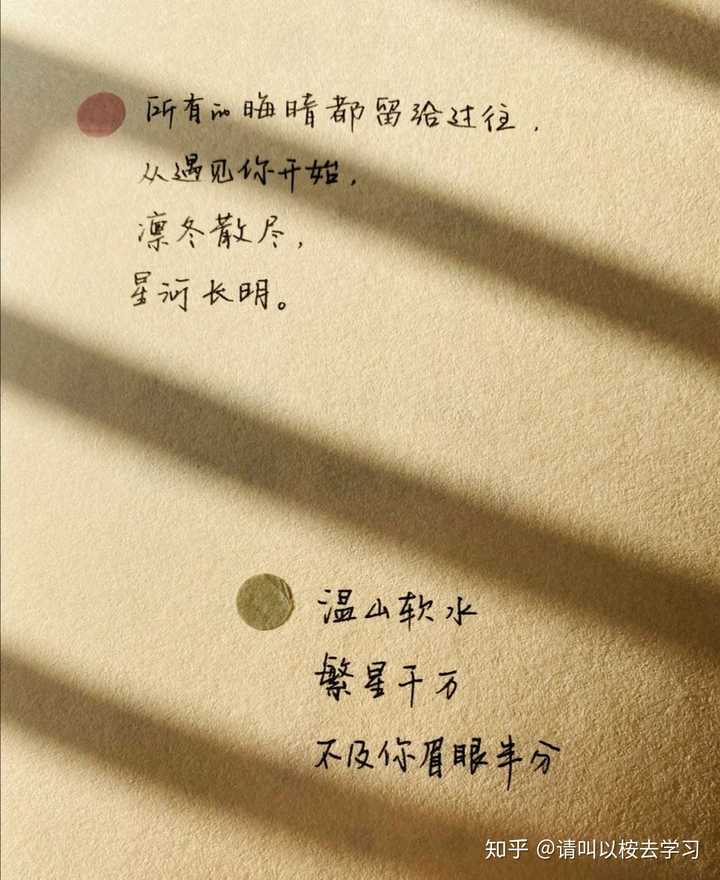 所有的晦暗都留给过往,
从遇见你开始,
凛冬散尽,
星河长明。
温山软水
繁星千万
不及你眉眼半分
知乎 @请叫以桉去学习